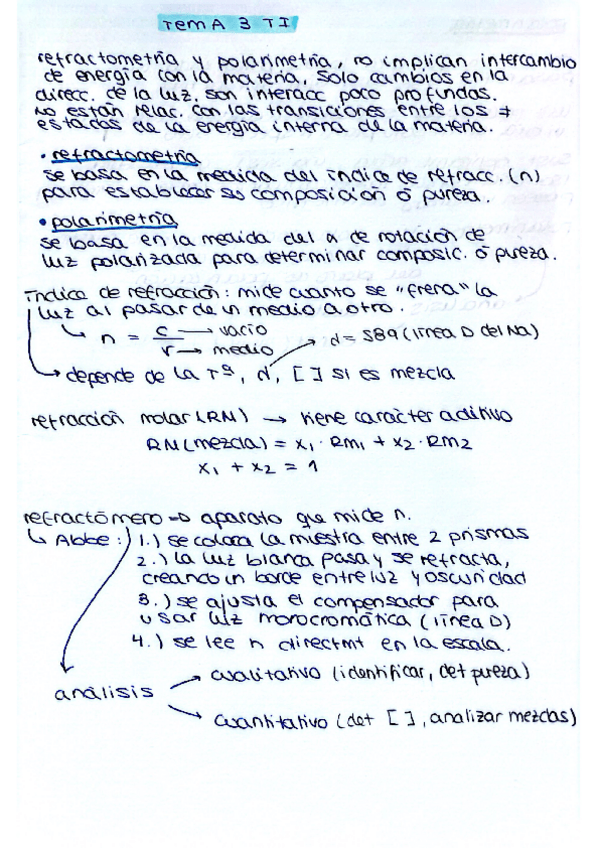 TEMA 3 TI
refractometría y polarimetría, no implican intercambio
de energía con la materia, solo cambios en la
direcc. de la luz, son interacc poco profundas.
No están relac. con las transiciones entre los ≠
estados de la energía interna de la materia.
• refractometría
se basa en la medida del índice de refracc. (n)
para establecer su composición ó pureza.
• polarimetría
se basa en la medida del α de rotación de
luz polarizada para determinar composic. ó pureza.
índice de refracción: mide cuanto se "frena" la
luz al pasar de un medio a otro.
↳ n = c/v → vacío → medio
λ = 589 (línea D del Na)
↳ depende de la Tª, λ, [ ] si es mezcla
refracción molar (RM) → tiene carácter aditivo
RM(mezcla) = x₁ · Rm₁ + x₂ · Rm₂
x₁ + x₂ = 1
refractómero ⇒ aparato que mide n.
↳ Abbe: 1.) se coloca la muestra entre 2 prismas
2.) la luz blanca pasa y se refracta,
creando un borde entre luz y oscuridad
3.) se ajusta el compensador para
usar luz monocromática (línea D)
4.) se lee n directmt en la escala.
análisis → cualitativo (identificar, det pureza)
→ cuantitativo (det [ ], analizar mezclas)